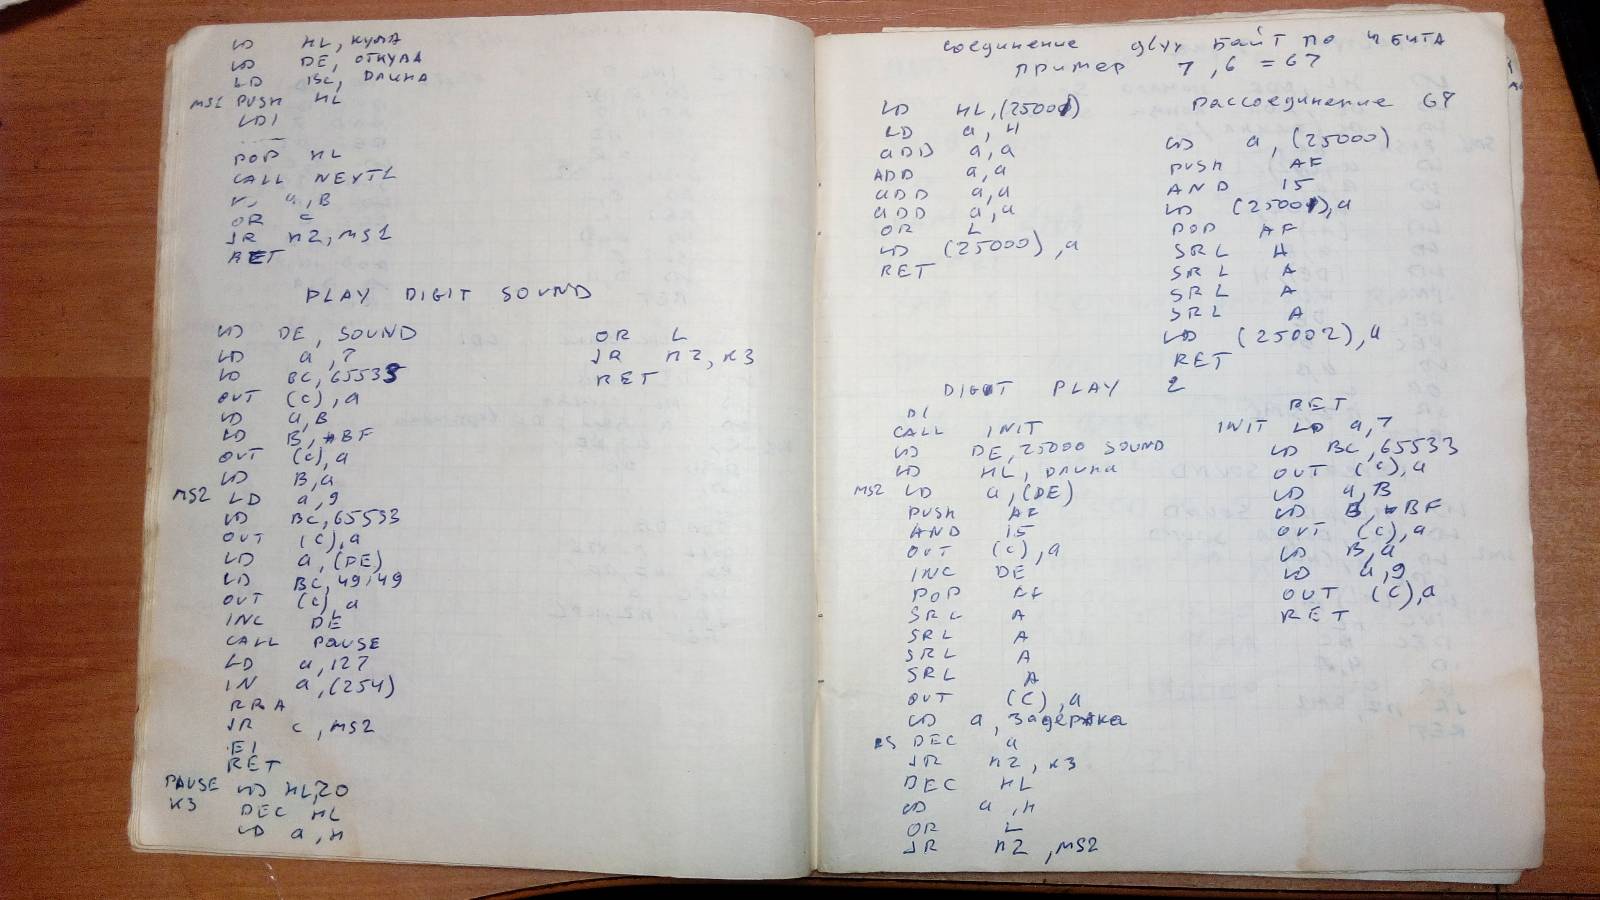 LD HL, КУДА
LD DE, ОТКУДА
LD BC, ДЛИНА
MS1 PUSH HL
LDI
....
POP HL
CALL NEXTL
LD a, B
OR C
JR nZ, MS1
RET
PLAY DIGIT SOUND
LD DE, SOUND
LD a, 7
LD BC, 65533
OUT (C), a
LD a, B
LD B, #BF
OUT (C), a
LD B, a
MS2 LD a, 9
LD BC, 65533
OUT (C), a
LD a, (DE)
LD BC, 49149
OUT (C), a
INC DE
CALL PAUSE
LD a, 127
IN a, (254)
RRA
JR C, MS2
EI
RET
PAUSE LD HL, 20
K3 DEC HL
LD a, H
OR L
JR nZ, K3
RET
соединение двух байт по 4 бита
пример 7, 6 = 67
LD HL, (25001)
LD a, H
aDD a, a
ADD a, a
aDD a, a
aDD a, a
OR L
LD (25000), a
RET
рассоединение 67
LD a, (25000)
PUSH AF
AND 15
LD (25001), a
POP AF
SRL A
SRL A
SRL A
SRL A
LD (25002), a
RET
DIGIT PLAY 2
DI
CALL INIT
LD DE, 25000 SOUND
LD HL, ДЛИНА
MS2 LD a, (DE)
PUSH AF
AND 15
OUT (C), a
INC DE
POP AF
SRL A
SRL A
SRL A
SRL A
OUT (C), a
LD a, Задержка
DEC a
JR nZ, K3
DEC HL
LD a, H
OR L
JR nZ, MS2
RET
INIT LD a, 7
LD BC, 65533
OUT (C), a
LD a, B
LD B, #BF
OUT (C), a
LD B, a
LD a, 9
OUT (C), a
RET